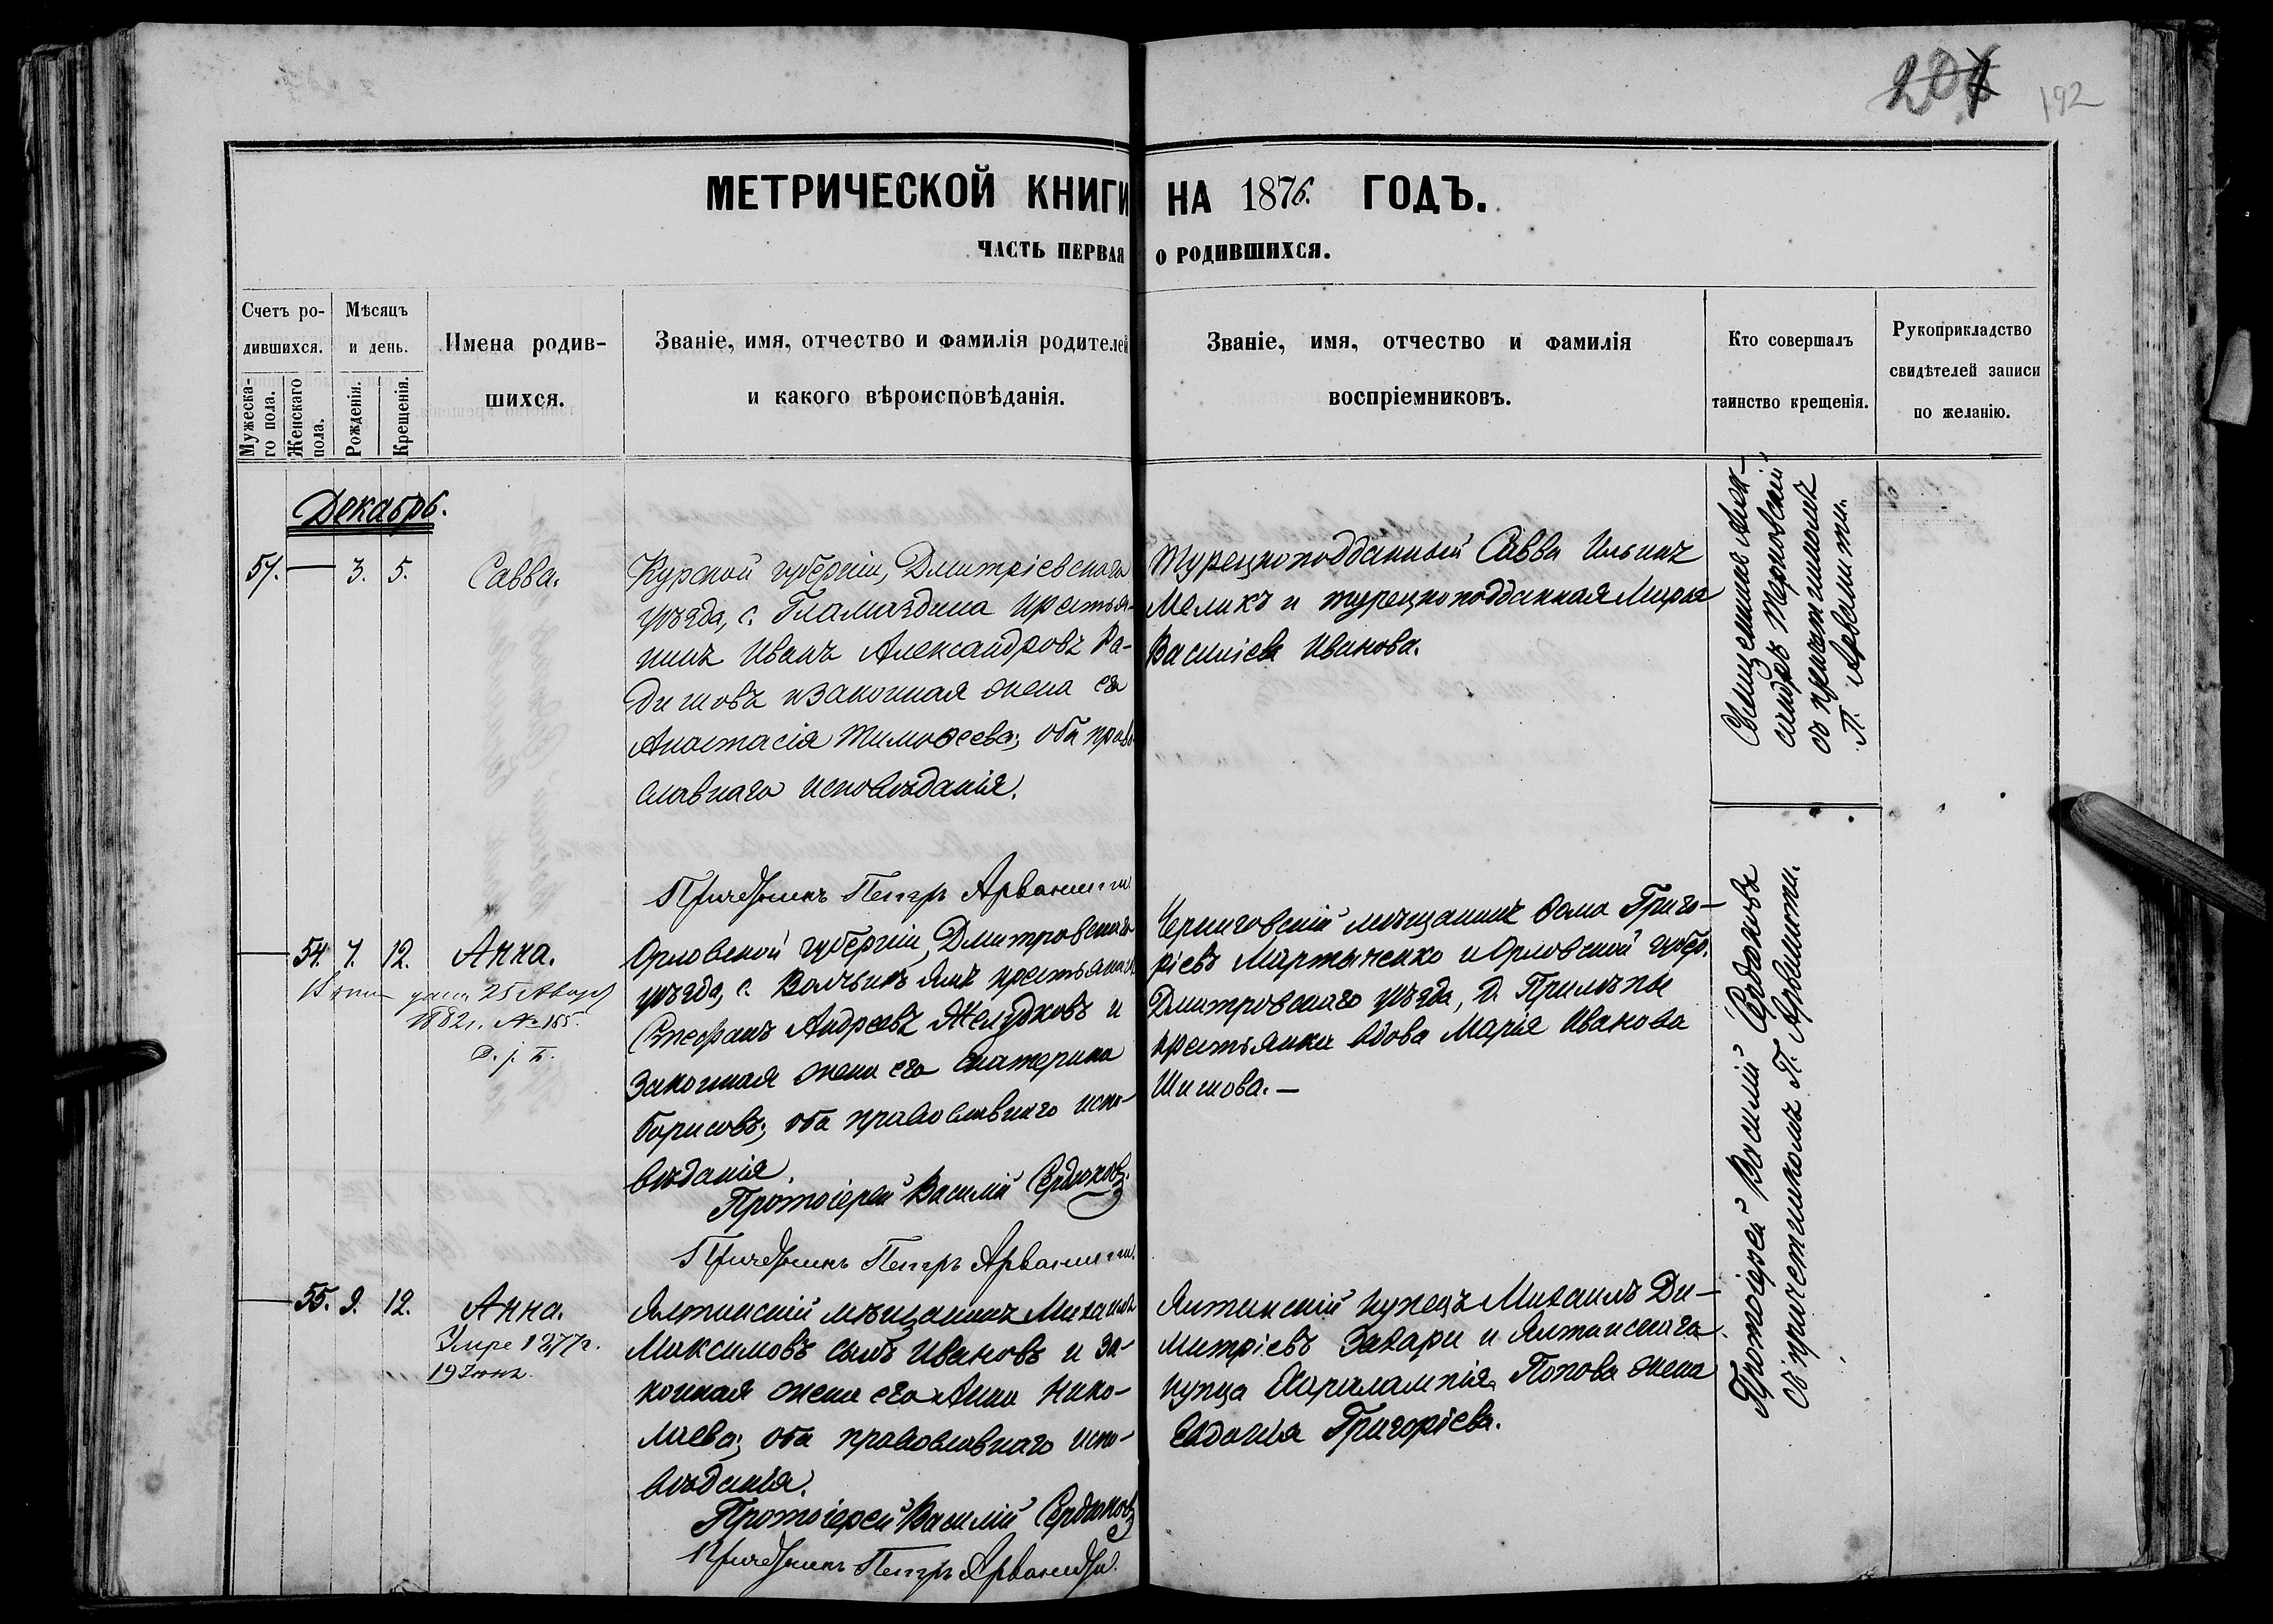 192
МЕТРИЧЕСКОЙ КНИГИ НА 1876. ГОДЪ.
ЧАСТЬ ПЕРВАЯ О РОДИВШИХСЯ.
Счетъ ро-
дившихся.
Мужеска-
го пола.
Женскаго
пола.
Мѣсяцъ
и день.
Рожденія.
Крещенія.
Имена родив-
шихся.
Званіе, имя, отчество и фамилія родителей
и какого вѣроисповѣданія.
Званіе, имя, отчество и фамилія
воспріемниковъ.
Кто совершалъ
таинство крещенія.
Рукоприкладство
свидѣтелей записи
по желанію.
Декабрь.
57. — 3. 5. Савва.
Курской губерніи, Дмитріевскаго
уѣзда, с. Гламаздина крестья-
нинъ Иванъ Александровъ Ра-
дишовъ и законная жена его
Анастасія Тимоѳеева; оба право
славнаго исповѣданія.
Причетникъ Петръ Арванити.
Турецкоподданный Савва Ильинъ
Меликъ и турецкоподданная Марія
Василіева Иванова.
Священникъ Алек-
сандръ Терновскій
съ причетникомъ
П. Арванити.
— 54. 7. 12. Анна.
дана 25 Авг.
1882 г. № 155.
Орловской губерніи, Дмитровскаго
уѣзда, с. Волчьихъ Ямъ крестьянинъ
Стефанъ Андреевъ Желудковъ и
законная жена его Екатерина
Борисовъ; оба православнаго испо-
вѣданія.
Протоіерей Василій Сердюковъ.
Причетникъ Петръ Арванити.
Черниговскій мѣщанинъ Ѳома Григо-
ріевъ Мартыненко и Орловской губер.
Дмитровскаго уѣзда, д. Прилѣпы
крестьянка вдова Марія Иванова
Шишова. —
Протоіерей Василій Сердюковъ
съ причетникомъ П. Арванити.
— 55. 9. 12. Анна.
Умре 1877 г.
19 Іюня.
Ялтинскій мѣщанинъ Михаилъ
Максимовъ сынъ Ивановъ и за-
конная жена его Анна Нико-
лаева; оба православнаго испо-
вѣданія.
Протоіерей Василій Сердюковъ
Причетникъ Петръ Арванити.
Ялтинскій купецъ Михаилъ Ди-
митріевъ Захари и Ялтинскаго
купца Харалампія Попова жена
Евдокія Григоріева.